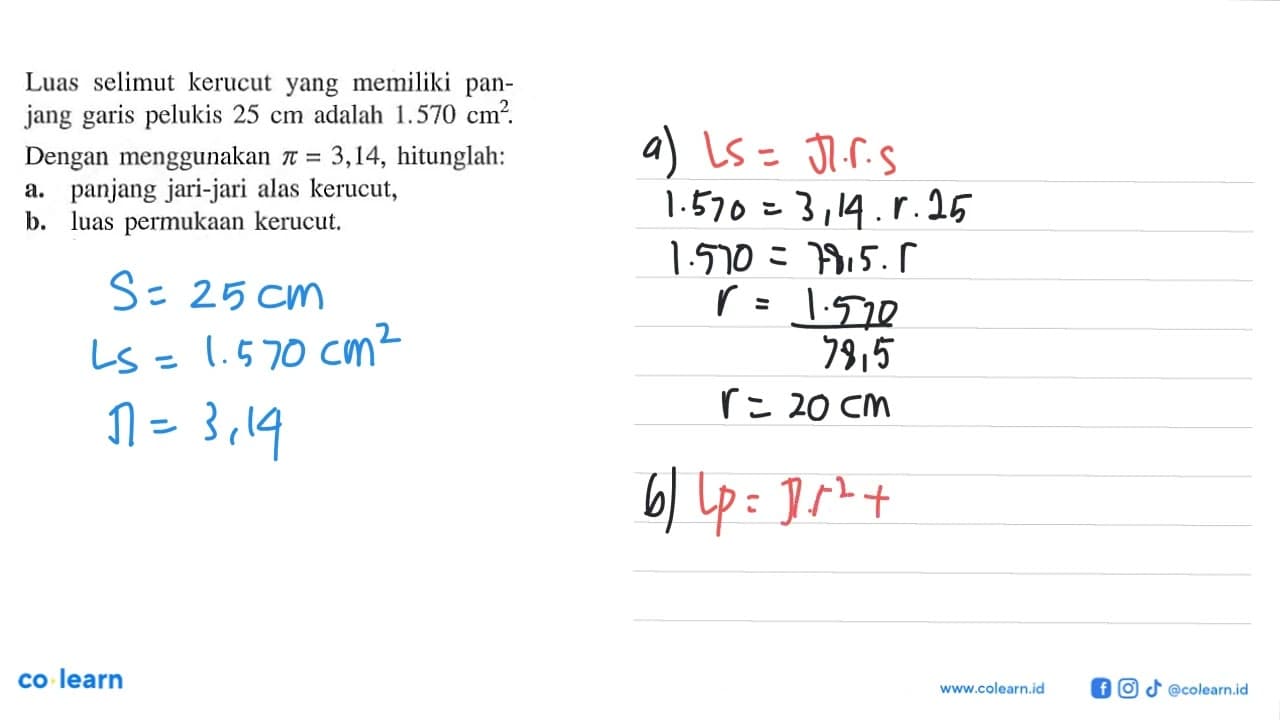 Luas selimut kerucut yang memiliki pan-
jang garis pelukis 25 cm adalah 1.570 cm².
Dengan menggunakan π = 3,14, hitunglah:
a. panjang jari-jari alas kerucut,
b. luas permukaan kerucut.
S = 25 cm
Ls = 1.570 cm²
π = 3,14
a) Ls = π.r.s
1.570 = 3,14 . r . 25
1.570 = 78,5 . r
r = 1.570
78,5
r = 20 cm
b) Lp = π.r² +
co learn
www.colearn.id
@colearn.id